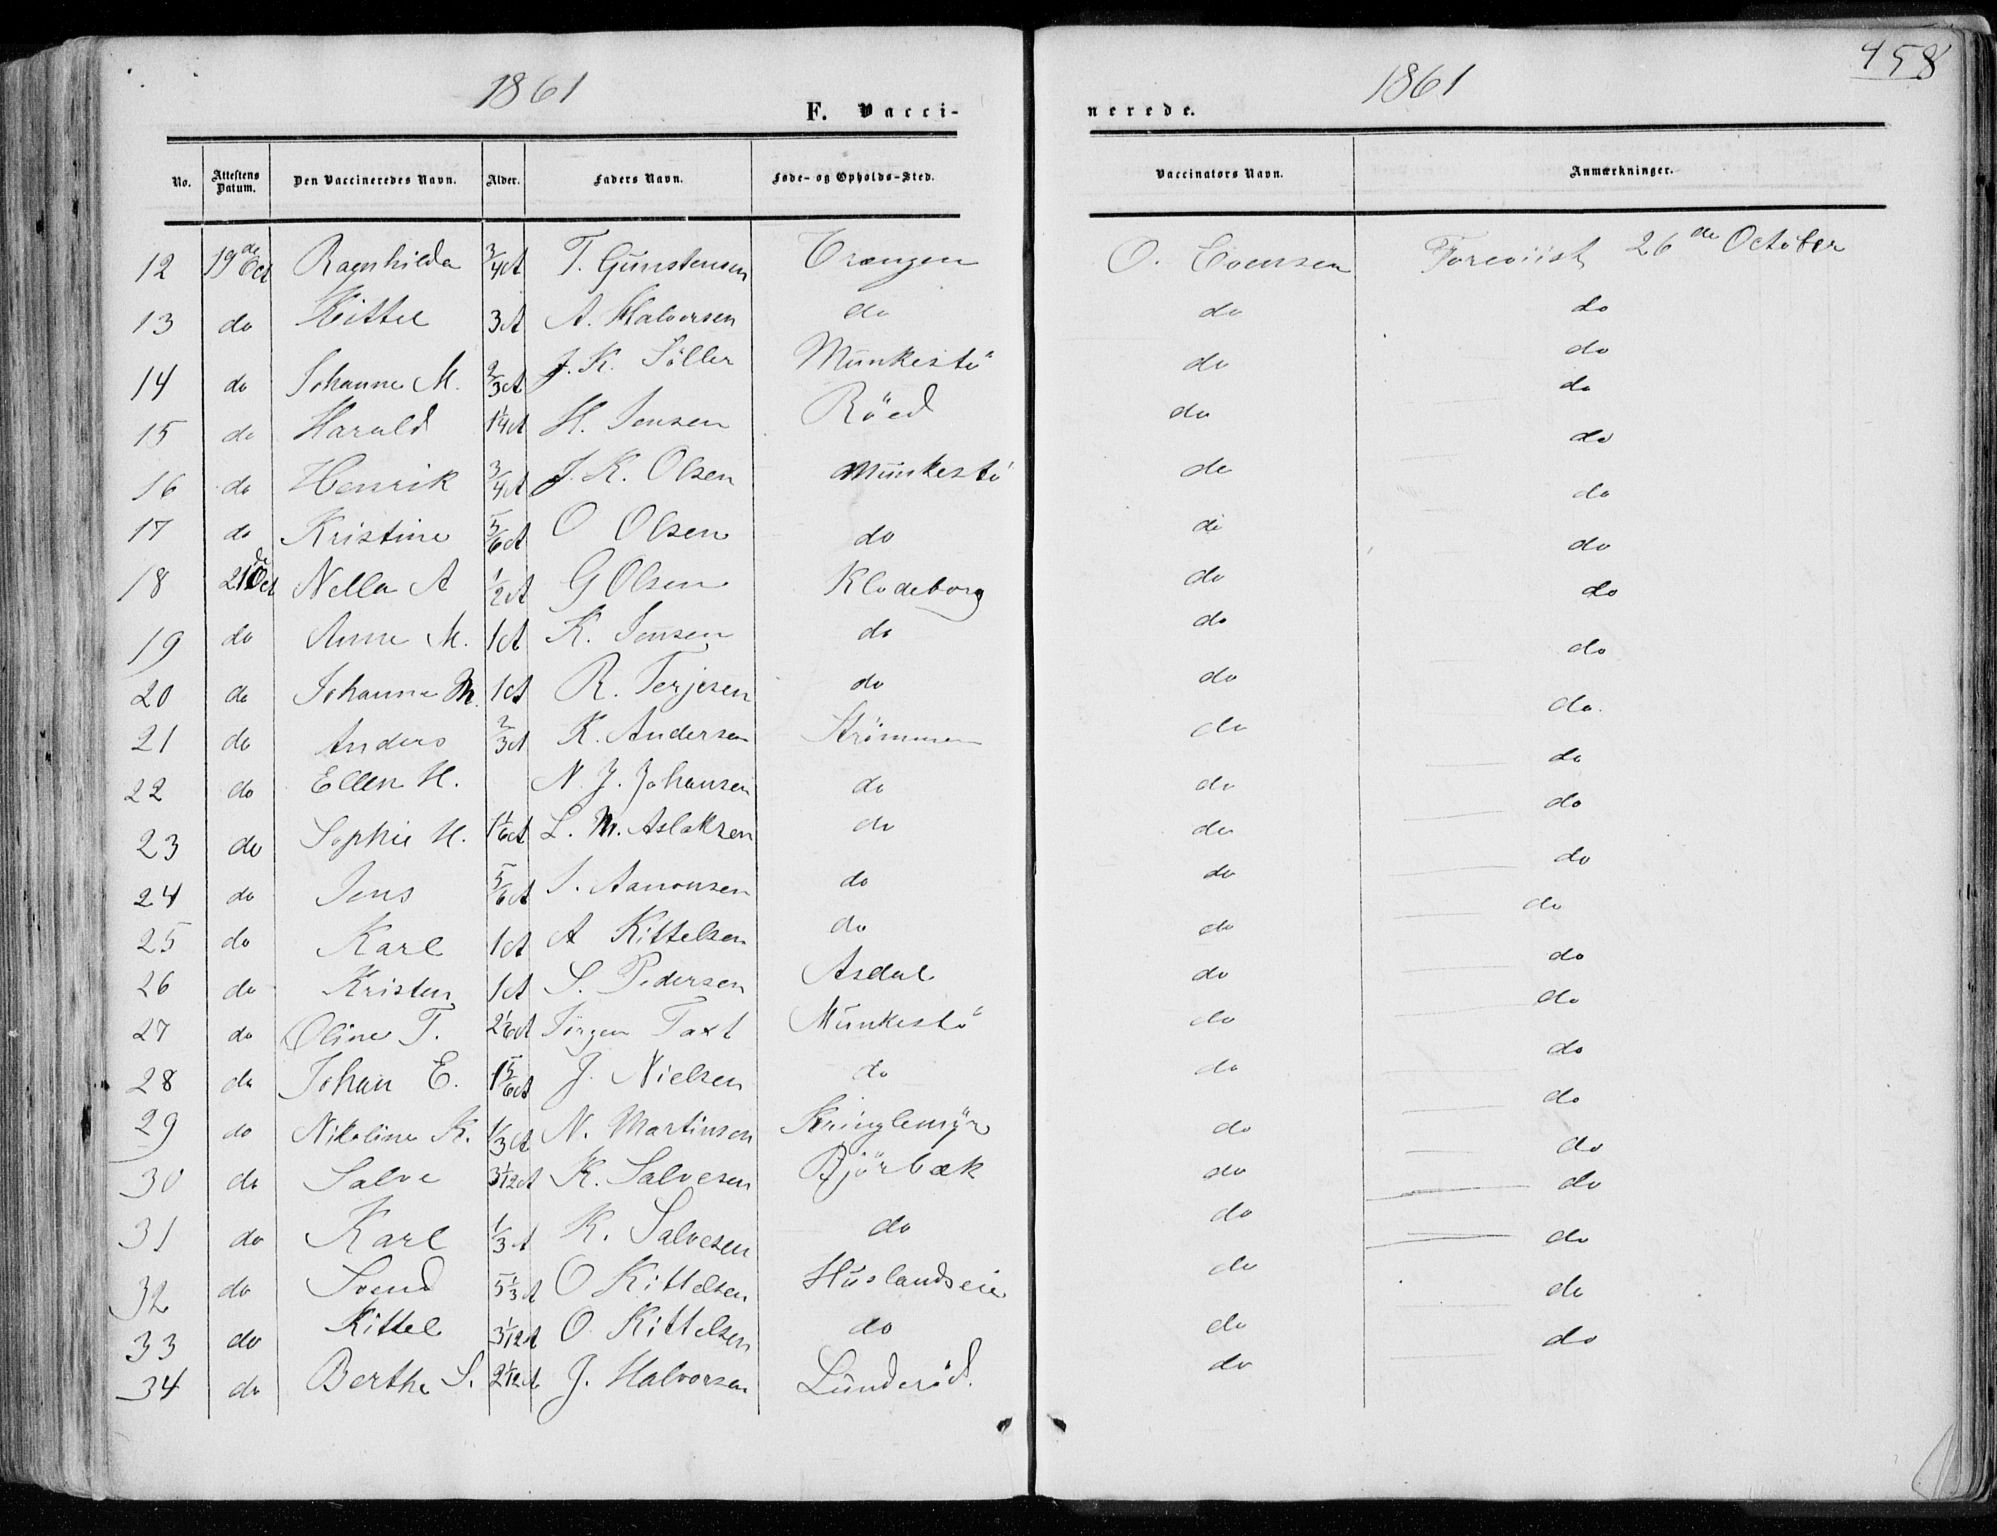 458
1861 1861
F. Vacci- nerede.
No. Attestens Datum. Den Vaccineredes Navn. Alder. Faders Navn. Føde- og Opholds-Sted. Vaccinators Navn. Anmærkninger.
12 19de Oct Ragnhilda 3/4 A T. Gunstensen Trangen O. Evensen Foreviist 26de October
13 do Kittel 3 A A. Halvorsen do do do
14 do Johanne M. 2/3 A J. K. Söller Munkestö do do
15 do Harald 1 1/4 A H. Jensen Röed do do
16 do Henrik 3/4 A J. K. Olsen Munkestö do do
17 do Kristine 5/6 A O Olsen do do do
18 21de Oct Nella A 1/2 A G Olsen Klodeborg do do
19 do Anne M. 1 A K. Jensen do do do
20 do Johanne M. 1 A R. Terjesen do do do
21 do Anders 2/3 A K. Andersen Strömmen do do.
22 do Ellen H. N. J. Johansen do do do
23 do Sophie H. 1 1/6 A L. M. Aslaksen do do do
24 do Jens 5/6 A J. Aanonsen do do do
25 do Karl 1 A A Kittelsen do do do
26 do Kristen 1 A S. Pedersen Asdal do do
27 do Oline T. 2 1/6 A Jörgen Taxt Munkestö do do
28 do Johan E. 1 5/6 A J. Nielsen do do do
29 do Nikoline K. 1/3 A N. Martinsen Kringlemÿr do do
30 do Salve 3 1/12 A K. Salvesen Bjørbæk do do
31 do Karl 1/3 A K. Salvesen do do do
32 do Svend 5 1/3 A O Kittelsen Huslandseie do do
33 do Kittel 3 1/12 A O. Kittelsen do do do
34 do Berthe S. 2 1/12 A J. Halvorsen Lunderöd. do do